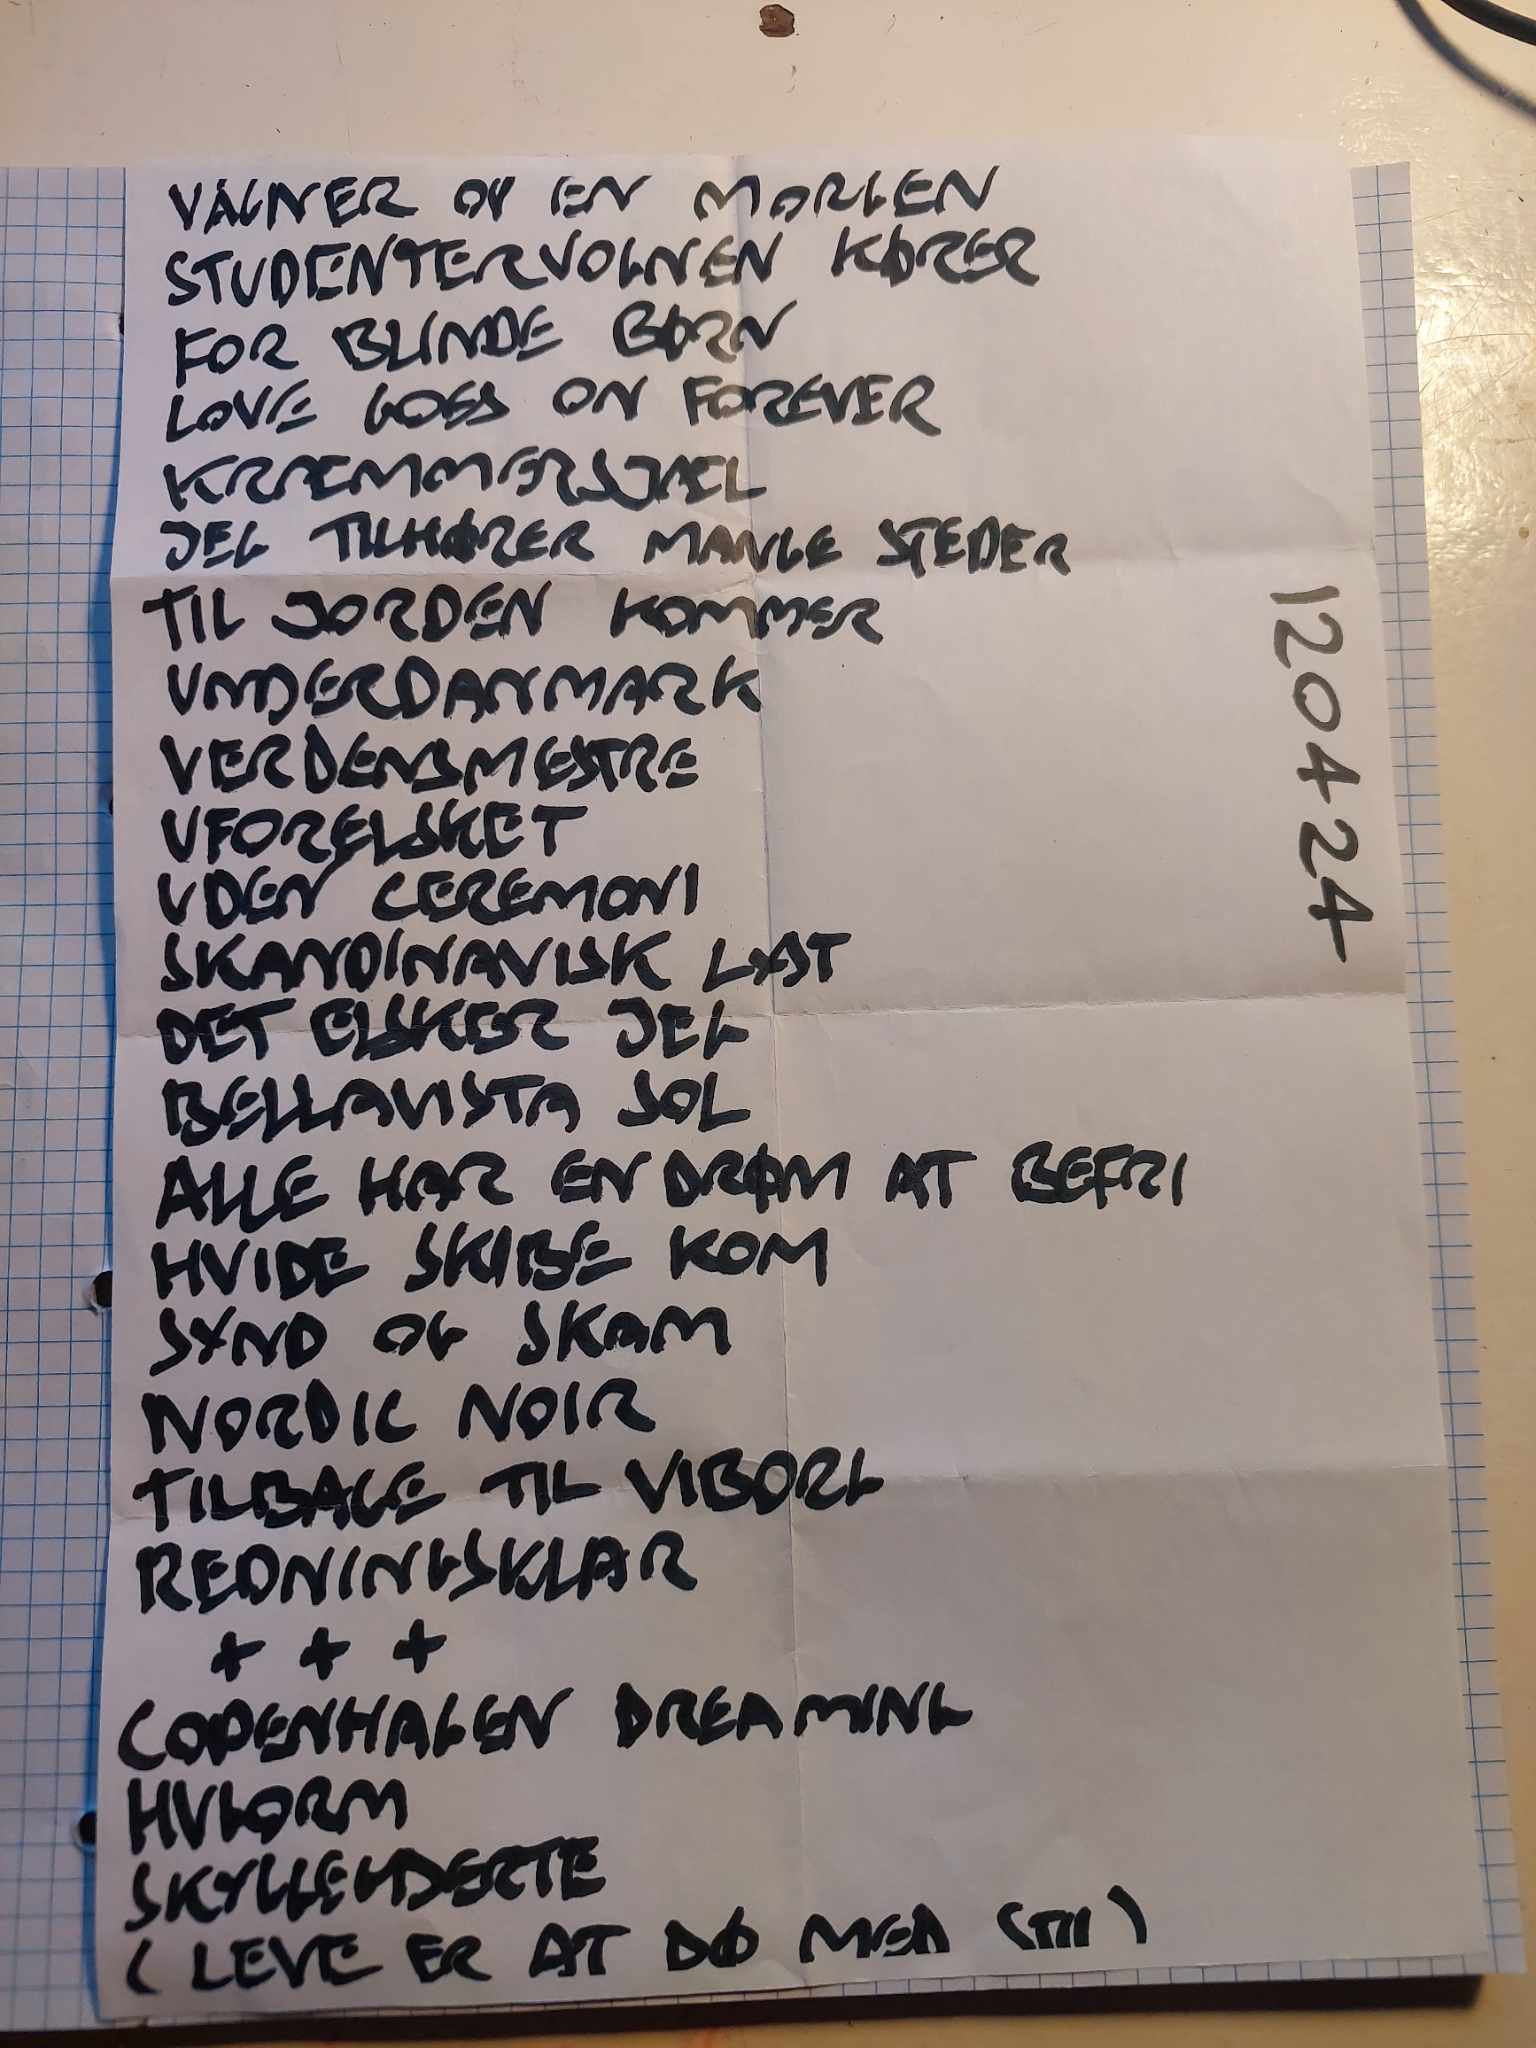 VÅGNER OP EN MORGEN
STUDENTERVOGNEN KØRER
FOR BLINDE BØRN
LOVE GOES ON FOREVER
KRÆMMERSJÆL
JEG TILHØRER MANGE STEDER
TIL JORDEN KOMMER
UNDERDANMARK
VERDENSMESTRE
UFORELSKET
UDEN CEREMONI
SKANDINAVISK LYST
DET ELSKER JEG
BELLAVISTA SOL
ALLE HAR EN DRØM AT BEFRI
HVIDE SKIBE KOM
SYND OG SKAM
NORDIC NOIR
TILBAGE TIL VIBORG
REDNINGSKLAR
+ + +
COPENHAGEN DREAMING
HUGORM
SKYGGEHJERTE
(LEVE ER AT DØ MED STIL)
120424